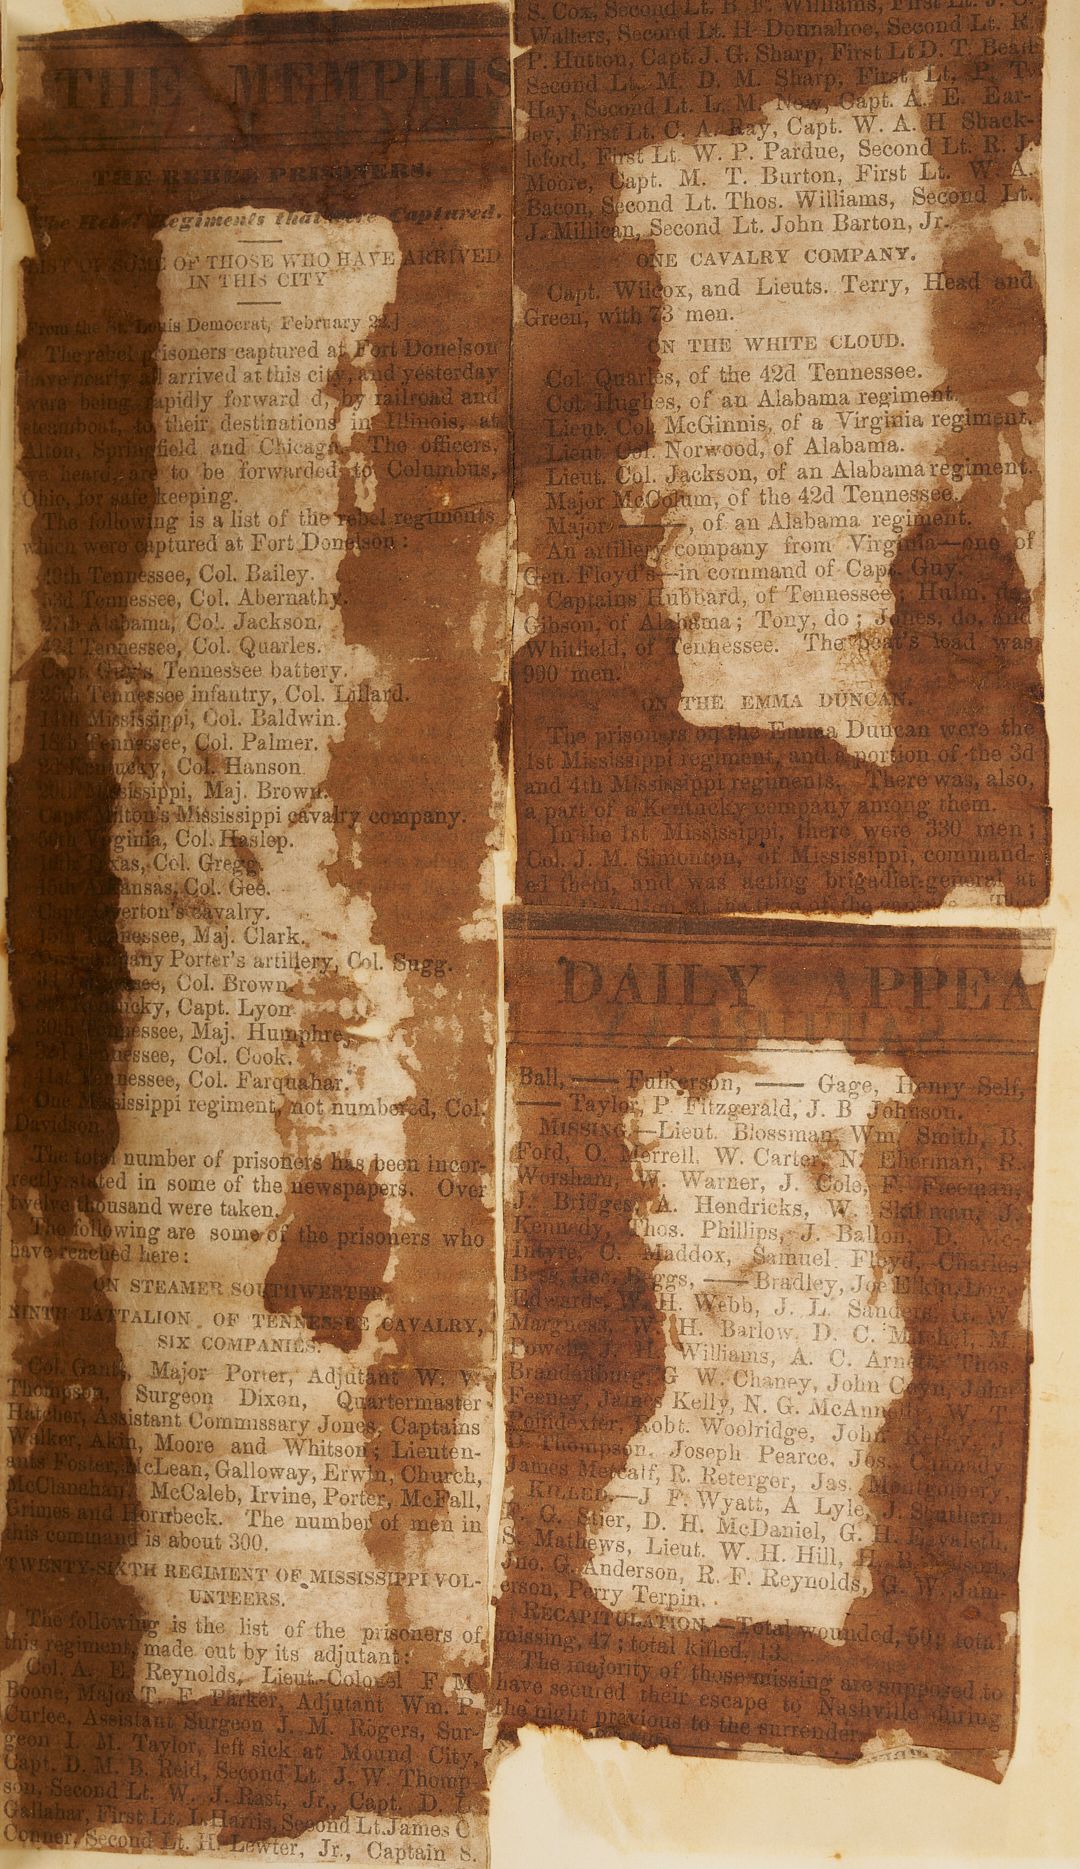 THE MEMPHIS
THE REBEL PRISONERS.
The Rebel Regiments that were Captured.
LIST OF SOME OF THOSE WHO HAVE ARRIVED
IN THIS CITY
From the St. Louis Democrat, February 22.]
The rebel prisoners captured at Fort Donelson
have nearly all arrived at this city, and yesterday
were being rapidly forward d, by railroad and
steamboat, to their destinations in Illinois, at
Alton, Springfield and Chicago. The officers,
we heard, are to be forwarded to Columbus,
Ohio, for safe keeping.
The following is a list of the rebel regiments
which were captured at Fort Donelson:
49th Tennessee, Col. Bailey.
53d Tennessee, Col. Abernathy.
27th Alabama, Col. Jackson.
42d Tennessee, Col. Quarles.
Capt. Guy's Tennessee battery.
26th Tennessee infantry, Col. Lillard.
14th Mississippi, Col. Baldwin.
18th Tennessee, Col. Palmer.
2d Kentucky, Col. Hanson.
20th Mississippi, Maj. Brown.
Capt. Milton's Mississippi cavalry company.
50th Virginia, Col. Haslep.
Texas, Col. Gregg.
15th Arkansas, Col. Gee.
Capt. Overton's cavalry.
Tennessee, Maj. Clark.
One company Porter's artillery, Col. Sugg.
3d Tennessee, Col. Brown.
8th Kentucky, Capt. Lyon.
30th Tennessee, Maj. Humphre
Tennessee, Col. Cook.
41st Tennessee, Col. Farquahar.
One Mississippi regiment, not numbered, Col.
Davidson.
The total number of prisoners has been incor-
rectly stated in some of the newspapers. Over
twelve thousand were taken.
The following are some of the prisoners who
have reached here:
ON STEAMER SOUTHWESTER.
NINTH BATTALION OF TENNESSEE CAVALRY,
SIX COMPANIES.
Col. Gantt, Major Porter, Adjutant W. W
Thompson, Surgeon Dixon, Quartermaster
Hatcher, Assistant Commissary Jones, Captains
Walker, Akin, Moore and Whitson; Lieuten-
ants Foster, McLean, Galloway, Erwin, Church,
McClanahan, McCaleb, Irvine, Porter, McFall,
Grimes and Hornbeck. The number of men in
this command is about 300.
TWENTY-SIXTH REGIMENT OF MISSISSIPPI VOL-
UNTEERS.
The following is the list of the prisoners of
this regiment, made out by its adjutant:
Col. A. E. Reynolds, Lieut-Colonel F. M.
Boone, Major T. F. Parker, Adjutant Wm. P.
Curlee, Assistant Surgeon J. M. Rogers, Sur-
geon I. M. Taylor, left sick at Mound City,
Capt. D. M. B. Reid, Second Lt. J. W. Thomp-
son, Second Lt. W. J. Rast, Jr., Capt. D. L.
Gallahar, First Lt. L Harris, Second Lt. James C.
Conner, Second Lt. H. Lewter, Jr., Captain S.
S. Cox, Second Lt. B. F. Williams, First Lt. J. C.
Walters, Second Lt. H. Donnahoe, Second Lt. R.
P. Hutton, Capt. J. G. Sharp, First Lt D. T. Beall
Second Lt. M. D. M. Sharp, First Lt. P. T.
Hay, Second Lt. L. M. New, Capt. A. E. Ear-
ley, First Lt. C. A. Ray, Capt. W. A. H Shack-
leford, First Lt. W. P. Pardue, Second Lt. R. J.
Moore, Capt. M. T. Burton, First Lt. W. A.
Bacon, Second Lt. Thos. Williams, Second Lt.
J. Millican, Second Lt. John Barton, Jr.
ONE CAVALRY COMPANY.
Capt. Wilcox, and Lieuts. Terry, Head and
Green, with 73 men.
ON THE WHITE CLOUD.
Col. Quarles, of the 42d Tennessee.
Col. Hughes, of an Alabama regiment.
Lieut. Col. McGinnis, of a Virginia regiment.
Lieut. Col. Norwood, of Alabama.
Lieut. Col. Jackson, of an Alabama regiment.
Major McColum, of the 42d Tennessee.
Major ———, of an Alabama regiment.
An artillery company from Virginia—one of
Gen. Floyd's—in command of Capt. Guy.
Captains Hubbard, of Tennessee; Hulm, do;
Gibson, of Alabama; Tony, do; Jones, do, and
Whitfield, of Tennessee. The boat's load was
990 men.
ON THE EMMA DUNCAN.
The prisoners on the Emma Duncan were the
1st Mississippi regiment, and a portion of the 3d
and 4th Mississippi regiments. There was, also,
a part of a Kentucky company among them.
In the 1st Mississippi, there were 330 men;
Col. J. M. Simonton, of Mississippi, command-
ed them, and was acting brigadier-general at
at the time of the capture. The
DAILY APPEA
Ball, —— Fulkerson, —— Gage, Henry Self,
—— Taylor, P. Fitzgerald, J. B Johnson.
MISSING.—Lieut. Blossman, Wm. Smith, B.
Ford, O. Merrell, W. Carter, N. Eherman, R.
Worsham, W. Warner, J. Cole, F. Freeman,
J. Bridges, A. Hendricks, W. Skillman, J.
Kennedy, Thos. Phillips, J. Ballon, D. Mc-
Intyre, C. Maddox, Samuel Floyd, Charles
Bess, Geo. Beggs, —— Bradley, Joe Elkin, Log.
Edwards, W. H. Webb, J. L. Sanders, G. W.
Margness, W. H. Barlow, D. C. Mitchel, M.
Powell, J. H. Williams, A. C. Arnett, Thos.
Brandenburg, G W. Chaney, John Coyn, John
Feeney, James Kelly, N. G. McAnnelly, W. T.
Poindexter, Robt. Woolridge, John Kelley, J.
D. Thompson, Joseph Pearce, Jos. Cannady
James Metcalf, R. Reterger, Jas. Montgomery.
KILLED.—J F. Wyatt, A Lyle, J. Southern
F. G. Stier, D. H. McDaniel, G. H. Esvaleth,
S. Mathews, Lieut. W. H. Hill, H. B. Nelson,
Jno. G. Anderson, R. F. Reynolds, G. W. Jam-
erson, Perry Terpin.
RECAPITULATION.—Total wounded, 50; total
missing, 47; total killed, 13.
The majority of those missing are supposed to
have secured their escape to Nashville during
the night previous to the surrender.